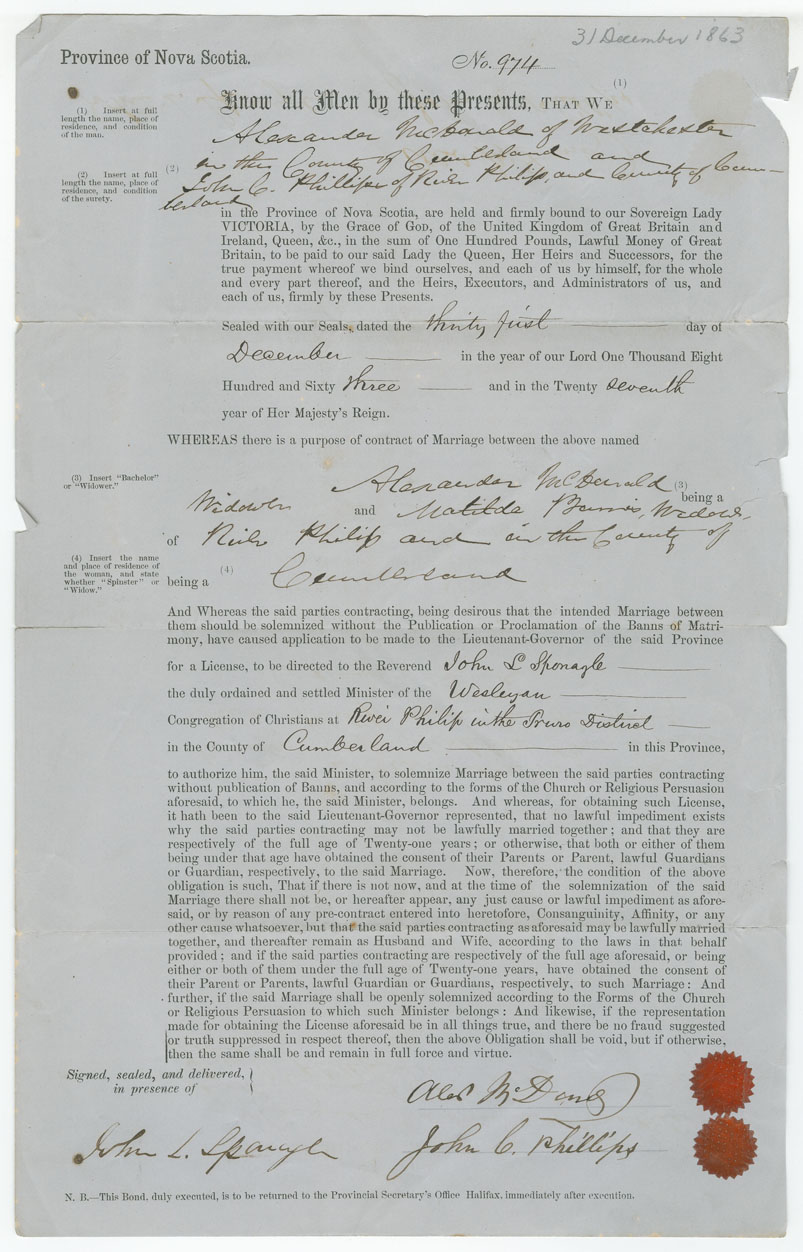 31 December 1863
Province of Nova Scotia.
No. 974
(1)
Know all Men by these Presents, THAT WE
(1) Insert at full
length the name, place of
residence, and condition
of the man.
Alexander McDonald of Westchester
(2)
in the County of Cumberland and
John C. Phillips of River Philip, and County of Cum-
berland
(2) Insert at full
length the name, place of
residence, and condition
of the surety.
in the Province of Nova Scotia, are held and firmly bound to our Sovereign Lady
VICTORIA, by the Grace of GOD, of the United Kingdom of Great Britain and
Ireland, Queen, &c., in the sum of One Hundred Pounds, Lawful Money of Great
Britain, to be paid to our said Lady the Queen, Her Heirs and Successors, for the
true payment whereof we bind ourselves, and each of us by himself, for the whole
and every part thereof, and the Heirs, Executors, and Administrators of us, and
each of us, firmly by these Presents.
Sealed with our Seals, dated the thirty first day of
December in the year of our Lord One Thousand Eight
Hundred and Sixty three and in the Twenty seventh
year of Her Majesty's Reign.
WHEREAS there is a purpose of contract of Marriage between the above named
(3) Insert "Bachelor"
or "Widower."
Alexander McDonald (3) being a
Widower and Matilda Widow,
of River Philip and in the County of
(4) Insert the name
and place of residence of
the woman, and state
whether "Spinster" or
"Widow."
being a (4) Cumberland
And Whereas the said parties contracting, being desirous that the intended Marriage between
them should be solemnized without the Publication or Proclamation of the Banns of Matri-
mony, have caused application to be made to the Lieutenant-Governor of the said Province
for a License, to be directed to the Reverend John L Sponagle
the duly ordained and settled Minister of the Wesleyan
Congregation of Christians at River Philip in the Truro District
in the County of Cumberland in this Province,
to authorize him, the said Minister, to solemnize Marriage between the said parties contracting
without publication of Banns, and according to the forms of the Church or Religious Persuasion
aforesaid, to which he, the said Minister, belongs. And whereas, for obtaining such License,
it hath been to the said Lieutenant-Governor represented, that no lawful impediment exists
why the said parties contracting may not be lawfully married together; and that they are
respectively of the full age of Twenty-one years; or otherwise, that both or either of them
being under that age have obtained the consent of their Parents or Parent, lawful Guardians
or Guardian, respectively, to the said Marriage. Now, therefore, the condition of the above
obligation is such, That if there is not now, and at the time of the solemnization of the said
Marriage there shall not be, or hereafter appear, any just cause or lawful impediment as afore-
said, or by reason of any pre-contract entered into heretofore, Consanguinity, Affinity, or any
other cause whatsoever, but that the said parties contracting as aforesaid may be lawfully married
together, and thereafter remain as Husband and Wife, according to the laws in that behalf
provided; and if the said parties contracting are respectively of the full age aforesaid, or being
either or both of them under the full age of Twenty-one years, have obtained the consent of
their Parent or Parents, lawful Guardian or Guardians, respectively, to such Marriage: And
further, if the said Marriage shall be openly solemnized according to the Forms of the Church
or Religious Persuasion to which such Minister belongs: And likewise, if the representation
made for obtaining the License aforesaid be in all things true, and there be no fraud suggested
or truth suppressed in respect thereof, then the above Obligation shall be void, but if otherwise,
then the same shall be and remain in full force and virtue.
Signed, sealed, and delivered,
in presence of
Alex McDonald
John L. Sponagle
John C. Phillips
N. B.—This Bond, duly executed, is to be returned to the Provincial Secretary's Office Halifax, immediately after execution.